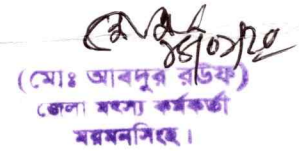 (মোঃ আবদুর রউফ)
জেলা মৎস্য কর্মকর্তা
ময়মনসিংহ।